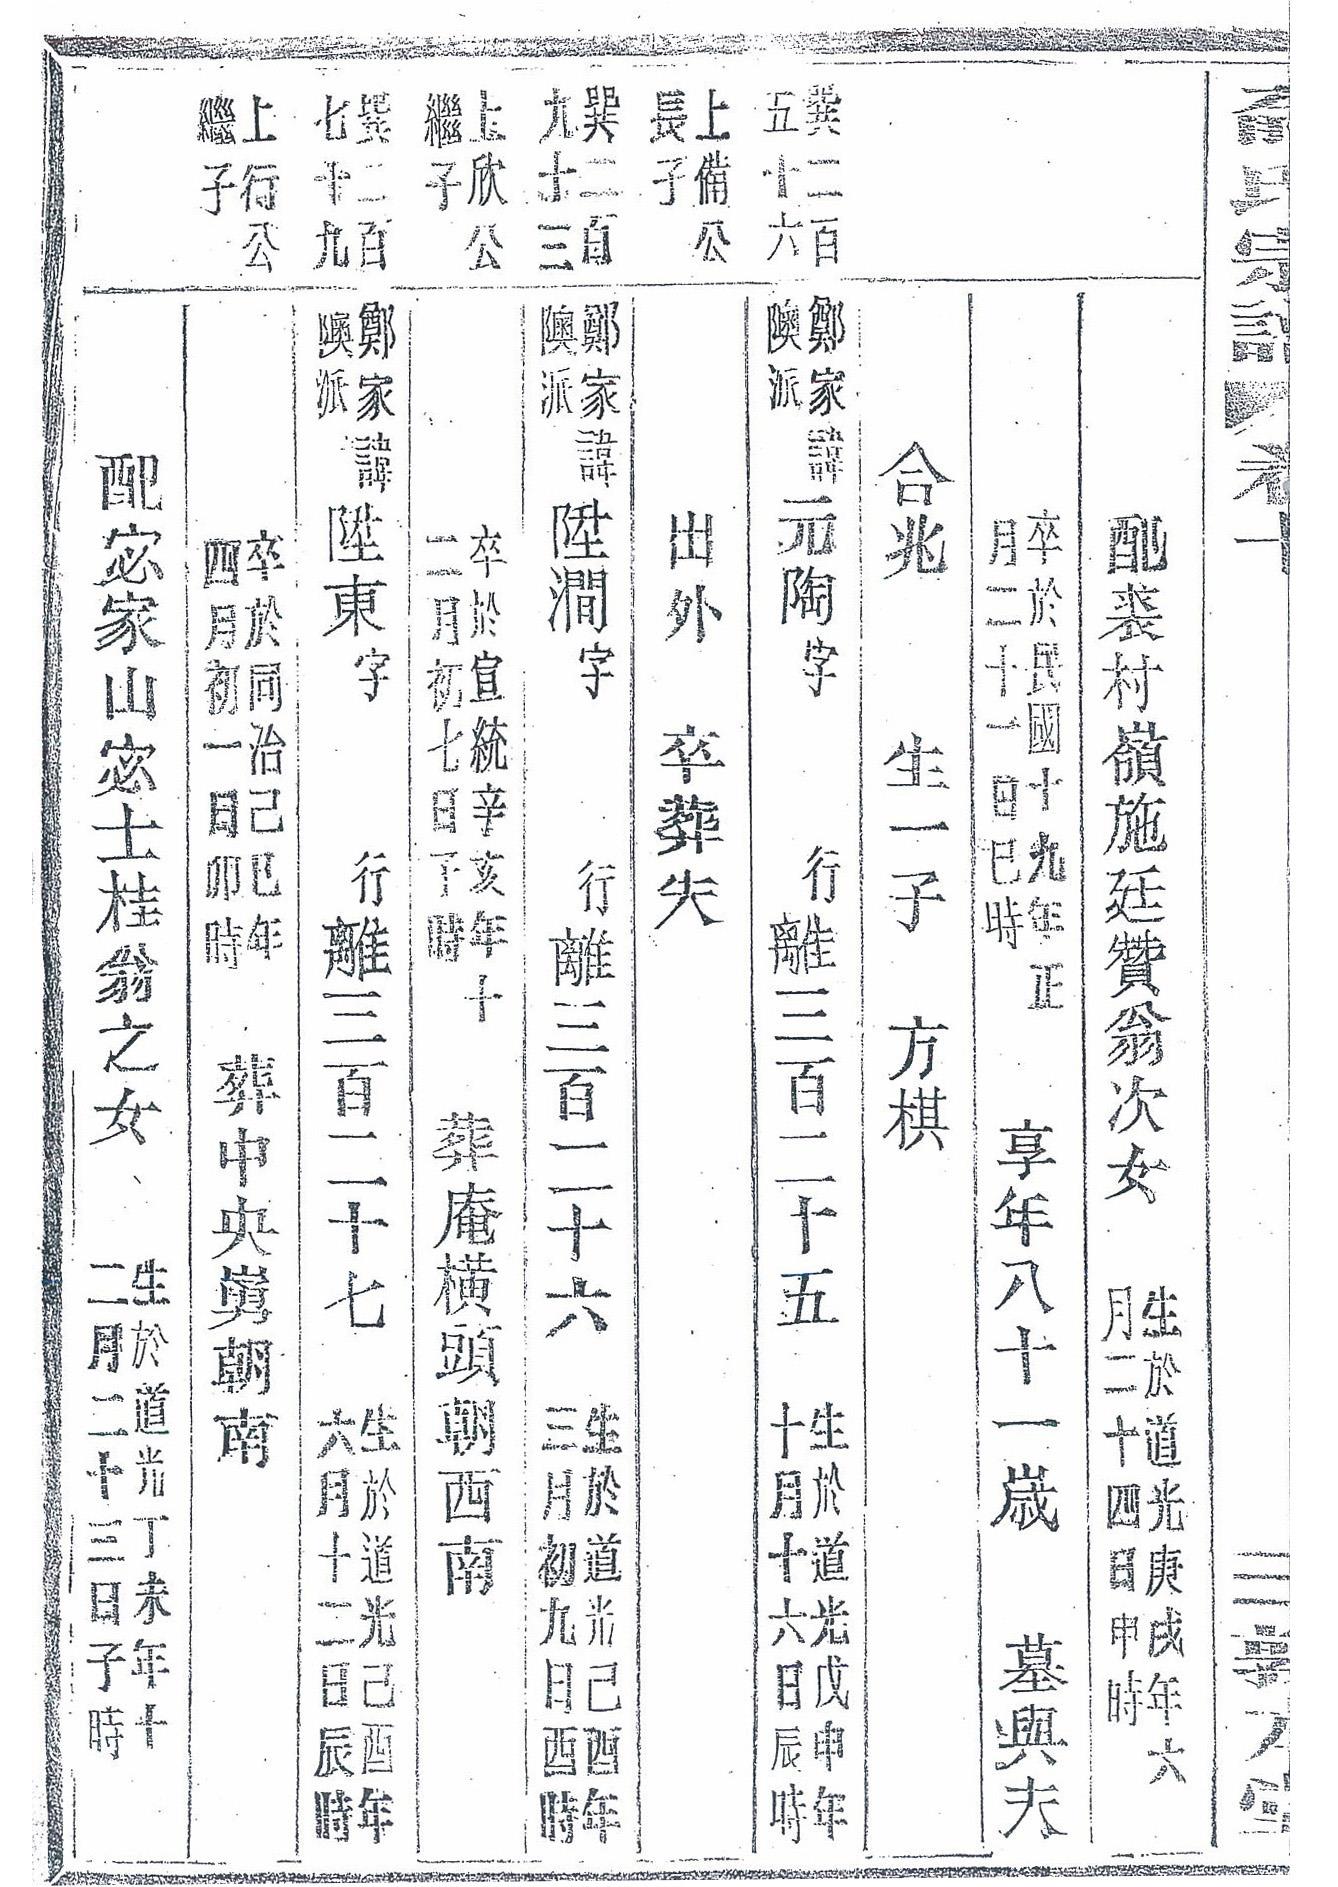 配裘村嶺施廷贊翁次女
生於道光庚戌年六
月二十四日申時
卒於民國十九年正
月二十一日巳時
享年八十一歲
墓與夫
合兆
生一子
方棋
巽二百
五十六
鄭家
隩派
諱元陶字
行離三百二十五
生於道光戊申年
十月十六日辰時
上備公
長子
出外
卒葬失
巽二百
九十三
鄭家
隩派
諱陞澗字
行離三百二十六
生於道光己酉年
三月初九日酉時
上欣公
繼子
卒於宣統辛亥年十
二月初七日子時
葬庵橫頭朝西南
巽二百
七十九
鄭家
隩派
諱陞東字
行離三百二十七
生於道光己酉年
六月十二日辰時
上行公
繼子
卒於同治己巳年
四月初一日卯時
葬中央嶴朝南
配宓家山宓士桂翁之女
生於道光丁未年十
二月二十三日子時